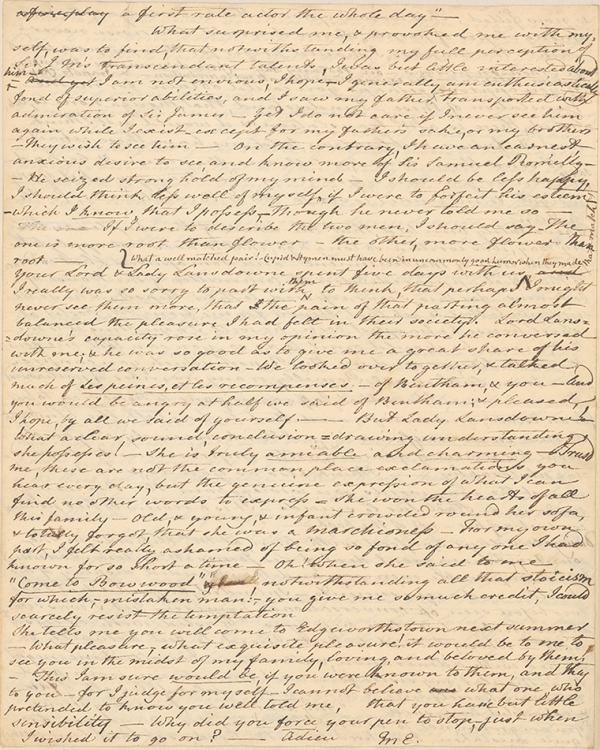 a first rate actor the whole day"—
What surprised me, & provoked me with my-
self, was to find, that notwithstanding my full perception of
Sir J M's transcendant talents, I was but little interested about
him — And yet I am not envious, I hope — I generally am enthusiastically
fond of superior abilities, and I saw my father transported with
admiration of Sir James — Yet I do not care if I never see him
again while I exist — except for my fathers sake, or my brothers
— They wish to see him — On the contrary, I have an earnest —
anxious desire to see and know more of Sir Samuel Romilly —
— He seized strong hold of my mind — I should be less happy,
I should think less well of myself, if I were to forfeit his esteem
— which I know, that I possess — Though he never told me so —
If I were to describe the two men, I should say The
one is more root than flower — the other, more flower than
root — What a well matched pair! — Cupid & Hymen must have been in uncommonly good humor when they made that match!
Your Lord & Lady Lansdowne spent five days with us
I really was so sorry to part with them & to think, that perhaps I might
never see them more, that the pain of that parting almost
balanced the pleasure I had felt in their society. Lord Lans-
=downe's capacity rose in my opinion the more he conversed
with me; & he was so good as to give me a great share of his
unreserved conversation — We looked over together, & talked
much of Les peines, et les recompenses — of Bentham, & you — And
you would be angry at half we said of Bentham; & pleased,
I hope, by all we said of yourself — — But Lady Lansdowne —
What a clear, sound, conclusion = drawing understanding
she possesses! — She is truly amiable and charming — Trust
me, these are not the common place exclamations you
hear every day, but the genuine expression of what I can
find no other words to express = She won the hearts of all
this family — Old, & young, & infant crowded round her sofa,
& totally forgot, that she was a Marchioness — For my own
part, I felt really ashamed of being so fond of any one I had
known for so short a time — Oh! when she said to me
"Come to Bowwood" notwithstanding all that stoicism
for which, — mistaken man! — you give me so much credit, I could
scarcely resist the temptation
She tells me you will come to Edgeworthstown next summer
— What pleasure, what exquisite pleasure! it would be to me to
see you in the midst of my family, loving and beloved by them;
This I am sure would be, if you were known to them, and they
to you — for I judge for myself — I cannot believe what one, who
pretended to know you well told me, that you have but little
sensibility — Why did you force your pen to stop, just when
I wished it to go on? — Adieu M E.